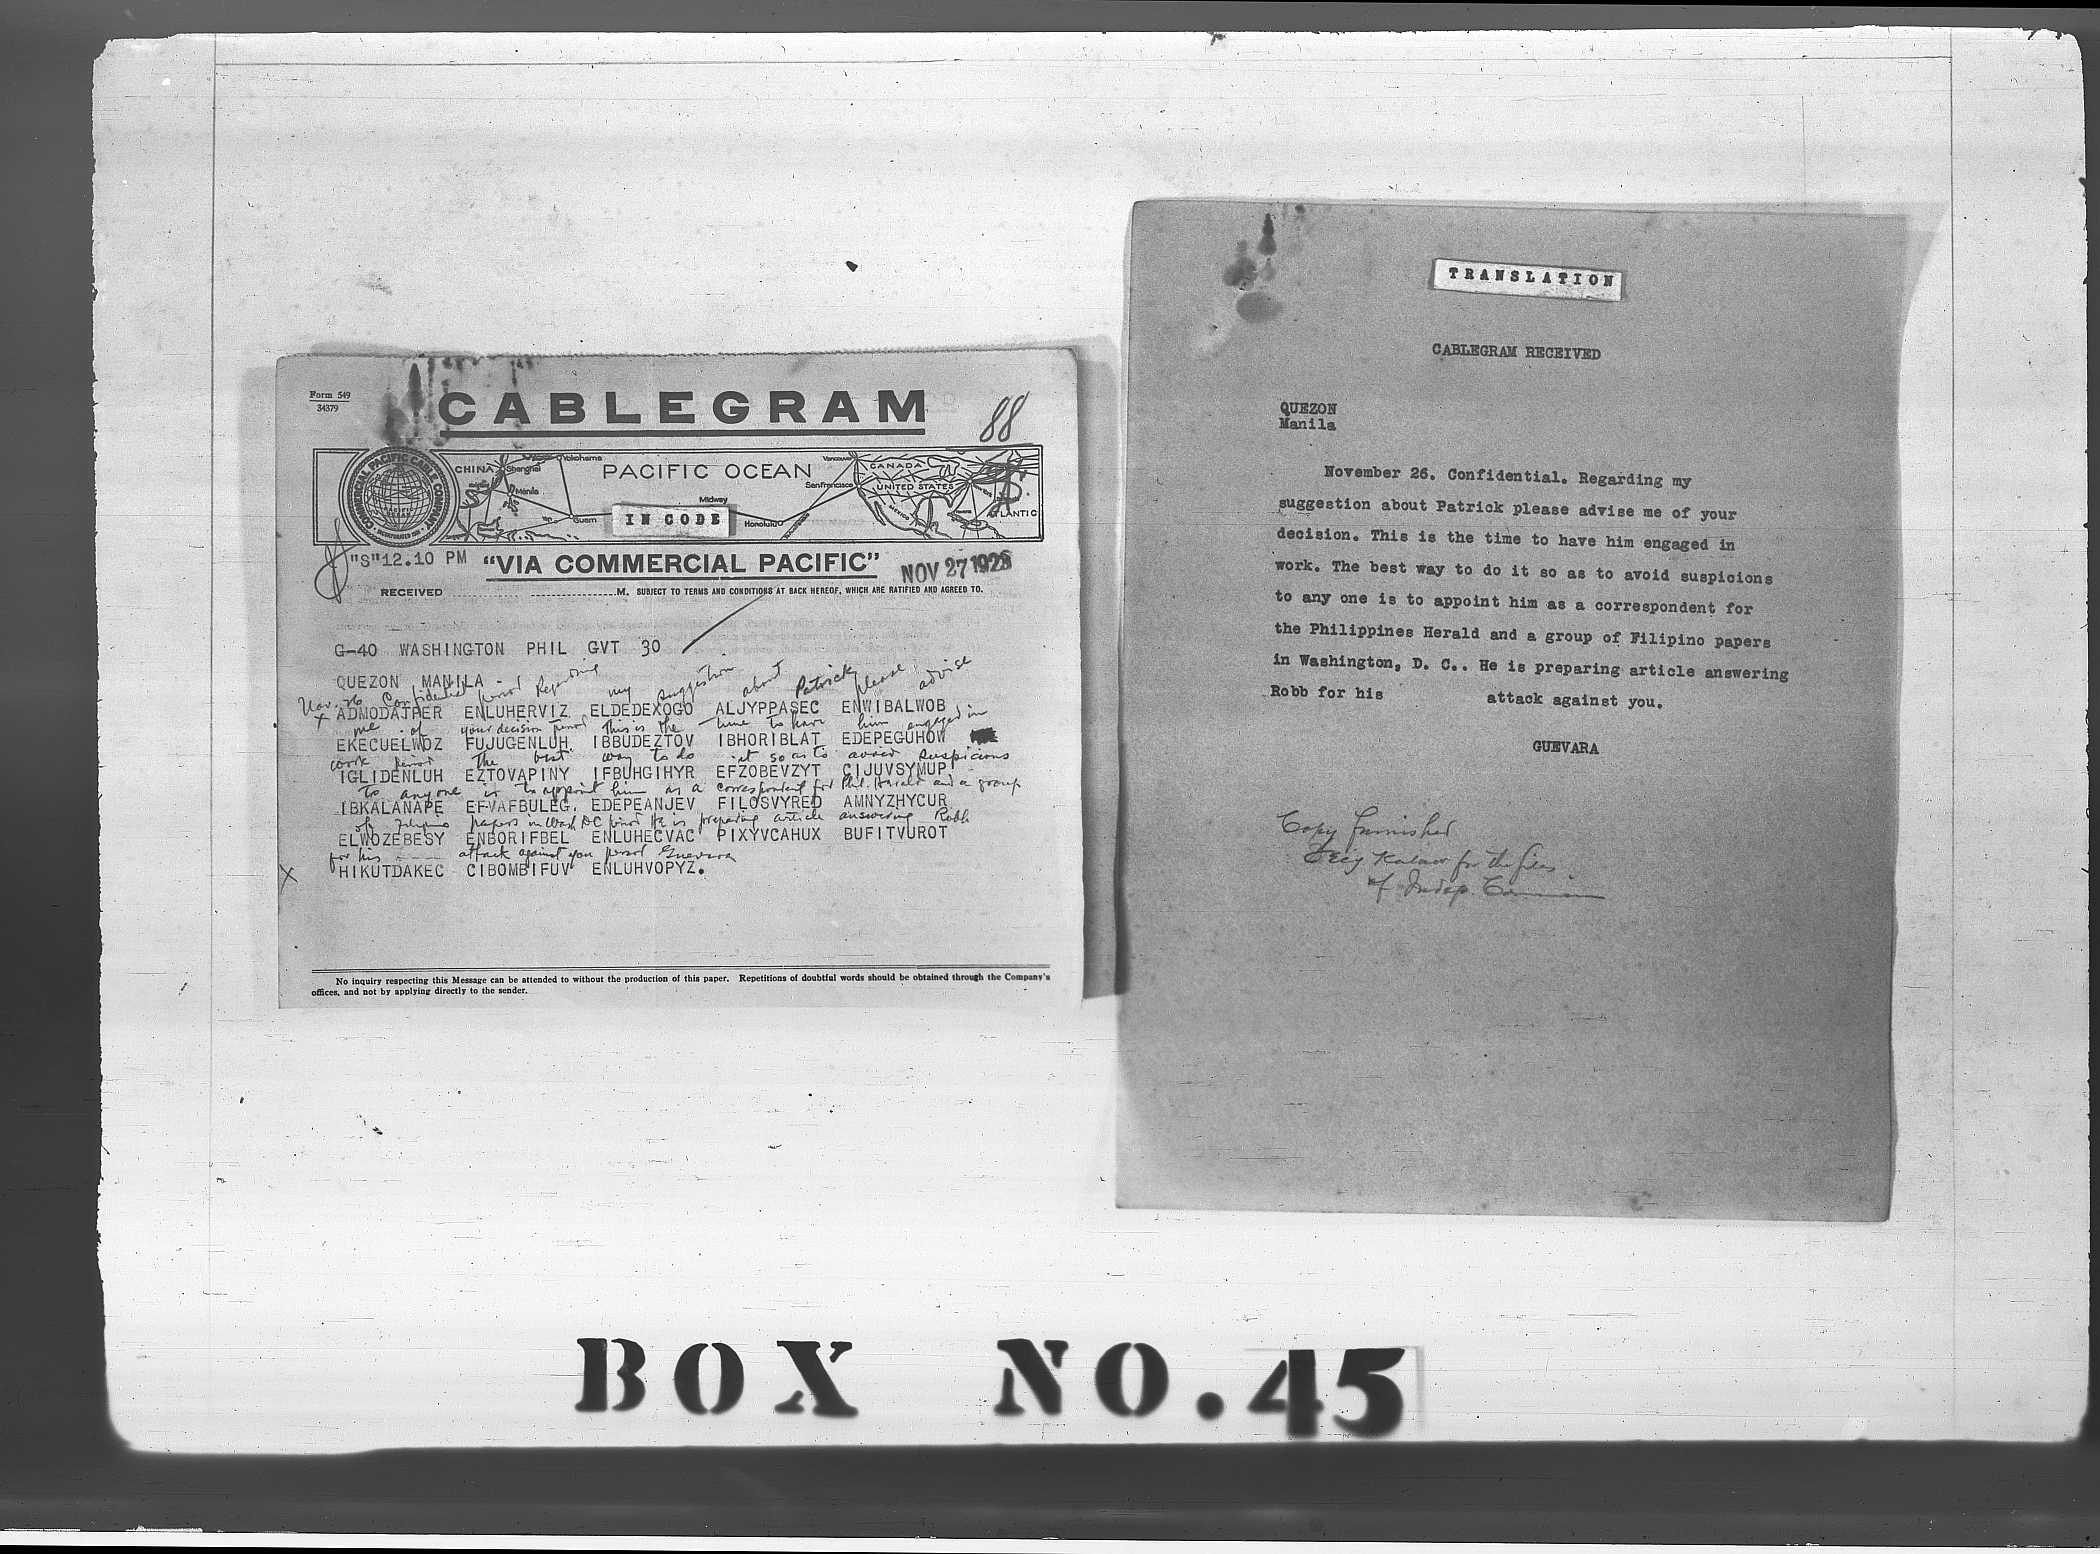 Form 549
34379
CABLEGRAM
88
COMMERCIAL PACIFIC CABLE COMPANY
INCORPORATED 1901
PACIFIC OCEAN
CHINA
Shanghai
Yokohama
Manila
Guam
Midway
Honolulu
San Francisco
Vancouver
CANADA
UNITED STATES
MEXICO
ATLANTIC
IN CODE
"S"12.10 PM
"VIA COMMERCIAL PACIFIC"
NOV 27 1925
RECEIVED M. SUBJECT TO TERMS AND CONDITIONS AT BACK HEREOF, WHICH ARE RATIFIED AND AGREED TO.
G-40 WASHINGTON PHIL GVT 30
QUEZON MANILA
Nov. 26 Confidential period Regarding my suggestion about Patrick please advise
X ADMODATPER ENLUHERVIZ ELDEDEXOGO ALJYPPASEC ENWIBALWOB
me of your decision period This is the time to have him engaged in
EKECUELWOZ FUJUGENLUH IBBUDEZTOV IBHORIBLAT EDEPEGUHOW
work period the best way to do it so as to avoid suspicions
IGLIDENLUH EZTOVAPINY IFBUHGIHYR EFZOBEVZYT CIJUVSYMUP
to anyone is to appoint him as a correspondent for Phil. Herald and a group
IBKALANAPE EFVAFBULEG. EDEPEANJEV FILOSVYRED AMNYZHYCUR
of Filipino papers in Wash DC period He is preparing article answering Robb
ELWOZEBESY ENBORIFBEL ENLUHECVAC PIXYVCAHUX BUFITVUROT
for his attack against you period Guevara
X HIKUTDAKEC CIBOMBIFUV ENLUHVOPYZ.
No inquiry respecting this Message can be attended to without the production of this paper. Repetitions of doubtful words should be obtained through the Company's
offices, and not by applying directly to the sender.
TRANSLATION
CABLEGRAM RECEIVED
QUEZON
Manila
November 26. Confidential. Regarding my
suggestion about Patrick please advise me of your
decision. This is the time to have him engaged in
work. The best way to do it so as to avoid suspicions
to any one is to appoint him as a correspondent for
the Philippines Herald and a group of Filipino papers
in Washington, D. C.. He is preparing article answering
Robb for his attack against you.
GUEVARA
Copy furnished
for the files
of Indep.
BOX NO. 45